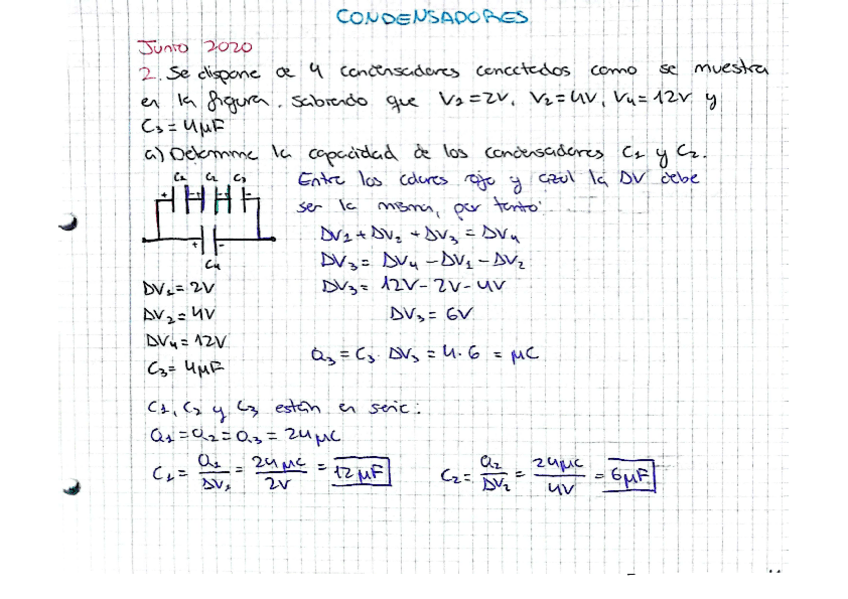 CONDENSADORES
Junio 2020
2. Se dispone de 4 condensadores conectados como se muestra
en la figura. Sabiendo que V₁=2V, V₂=4V, V₄=12V y
C₃=4μF
a) Determine la capacidad de los condensadores C₁ y C₂.
C₁ C₂ C₃
Entre los colores rojo y azul la DV debe
ser la misma, por tanto:
ΔV₁+ΔV₂+ΔV₃=ΔV₄
+ -
C₄
ΔV₃= ΔV₄-ΔV₁-ΔV₂
ΔV₁=2V
ΔV₃= 12V-2V-4V
ΔV₂=4V
ΔV₃=6V
ΔV₄=12V
C₃=4μF
Q₃=C₃·ΔV₃=4·6 = μC
C₁, C₂ y C₃ están en serie:
Q₁=Q₂=Q₃=24μC
C₁= Q₁/ΔV₁ = 24μC/2V = 12μF
C₂= Q₂/ΔV₂ = 24μC/4V = 6μF